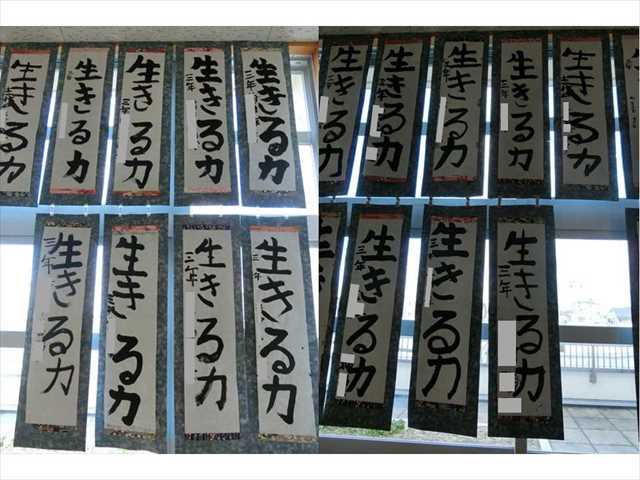 生きる力
三年
生きる力
三年
生きる力
三年
生きる力
三年
生きる力
三年
生きる力
三年
生きる力
三年
生きる力
三年
生きる力
三年
生きる力
生きる力
三年
生きる力
三年
生きる力
三年
生きる力
三年
生きる力
三年
生きる力
三年
生きる力
三年